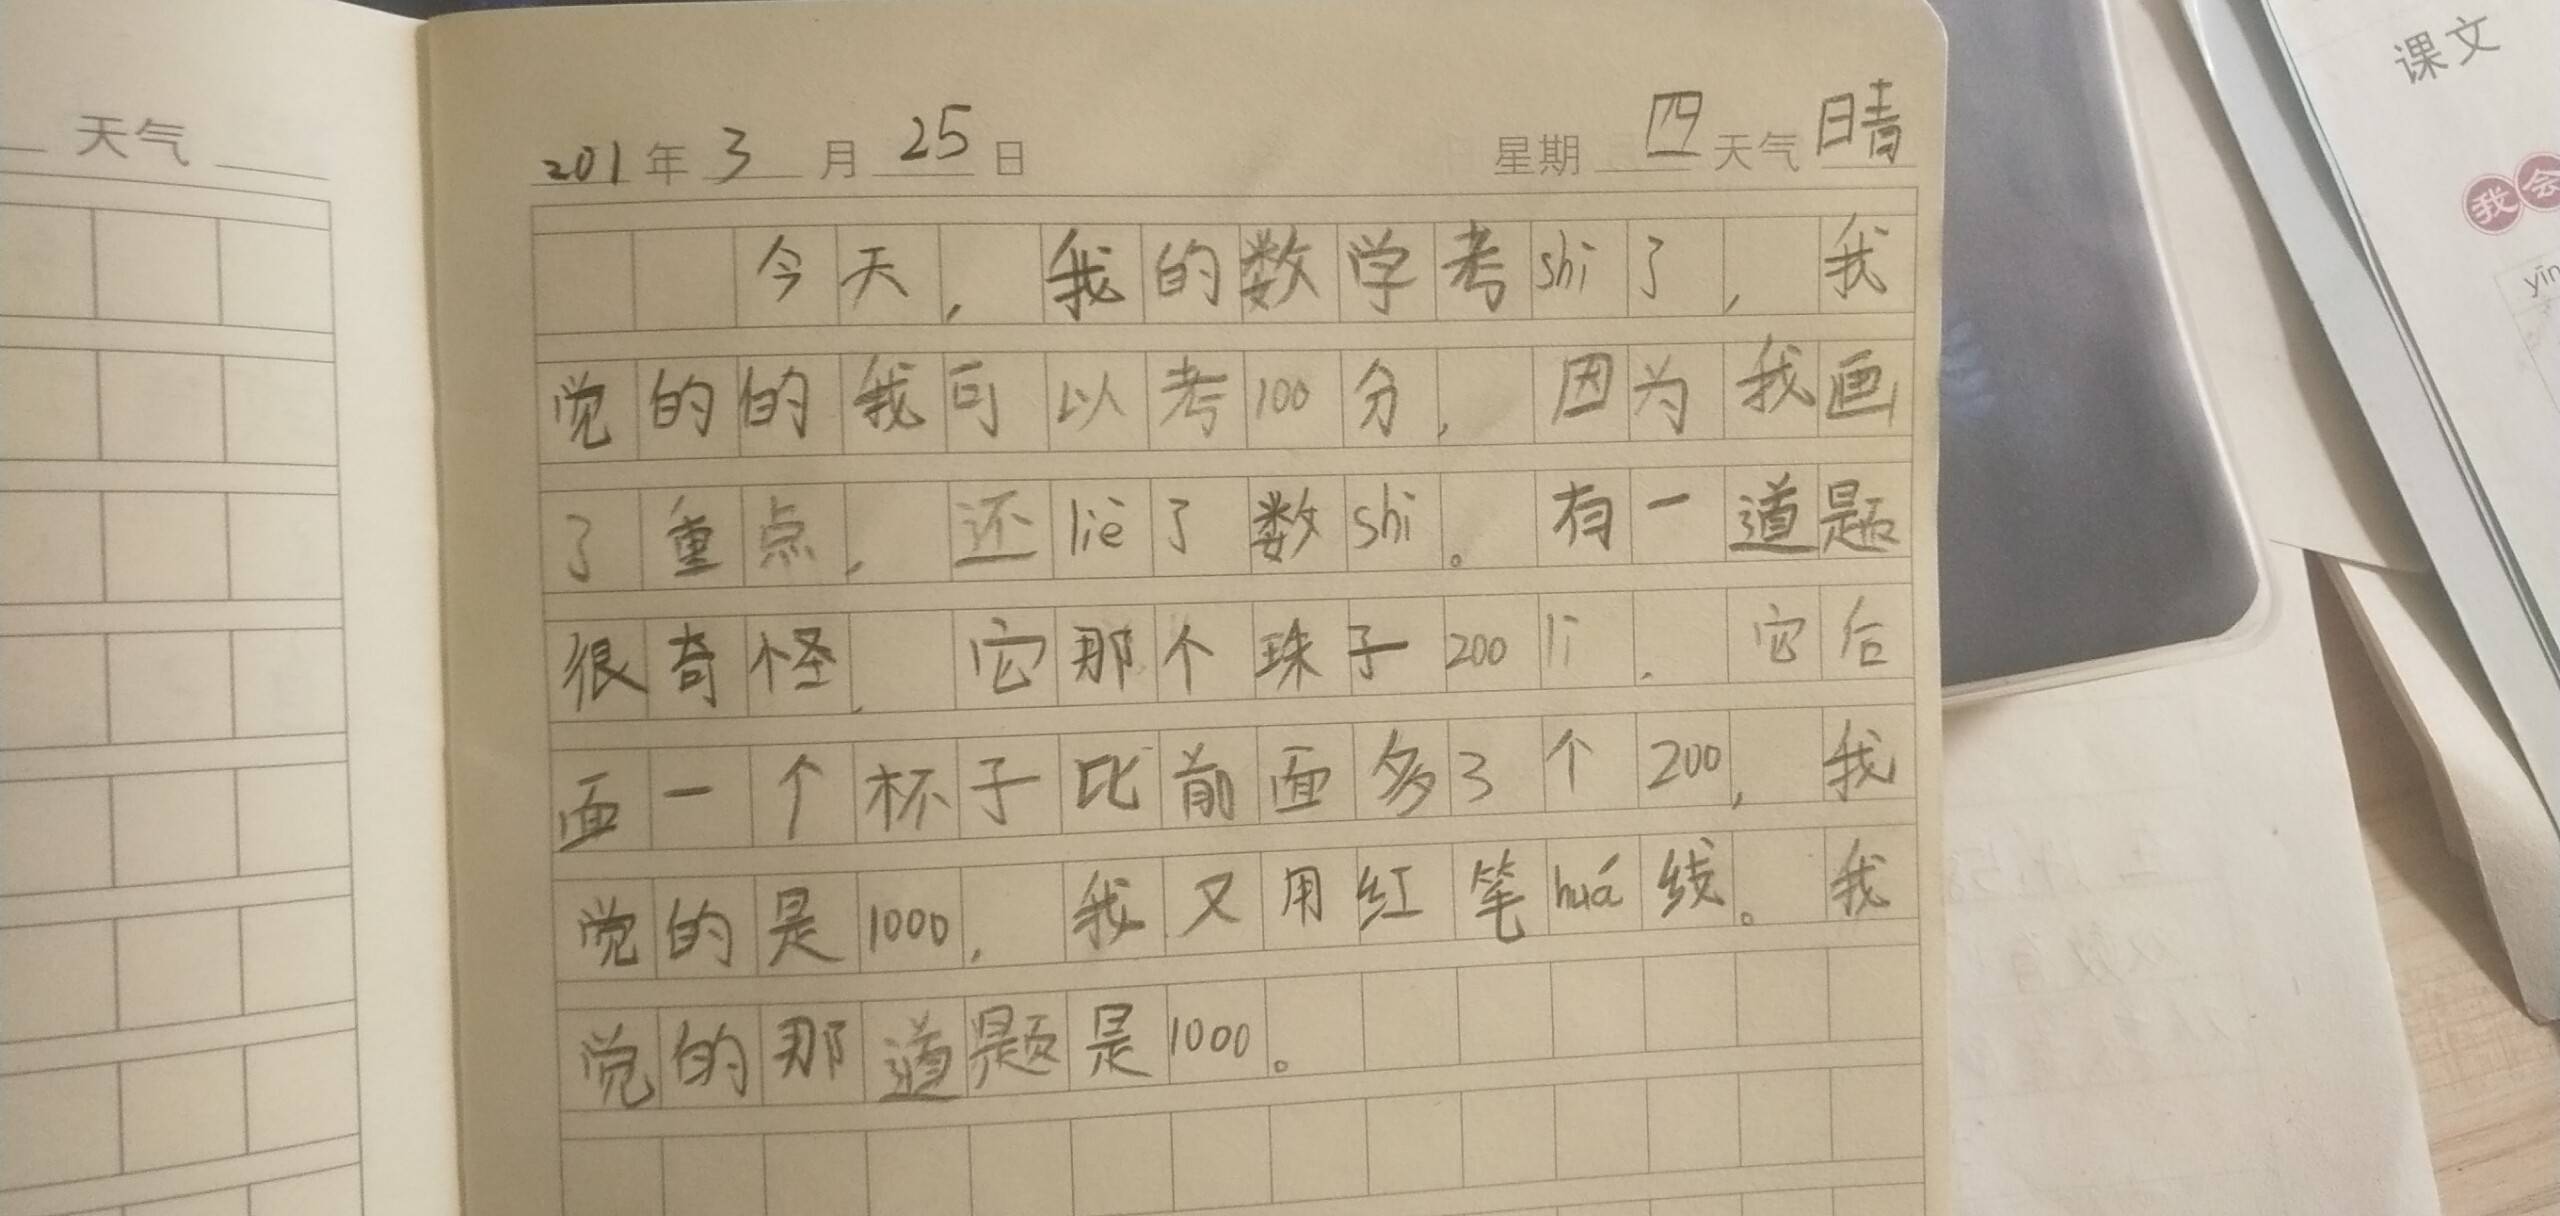 天气
课文
我会
yīn
201年3月25日 星期四 天气晴
今天,我的数学考shi了,我
觉的的我可以考100分,因为我画
了重点,还liè了数shi。有一道题
很奇怪,它那个珠子200li,它后
面一个杯子比前面多3个200,我
觉的是1000,我又用红笔huá线。我
觉的那道题是1000。